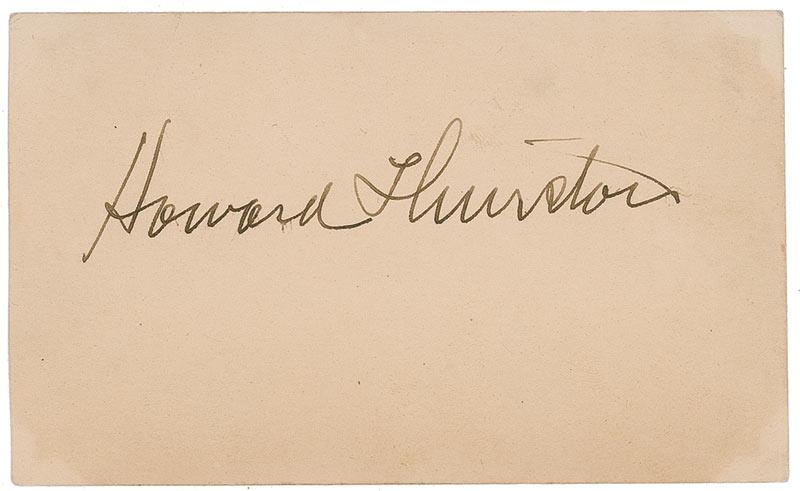 Howard Thurston